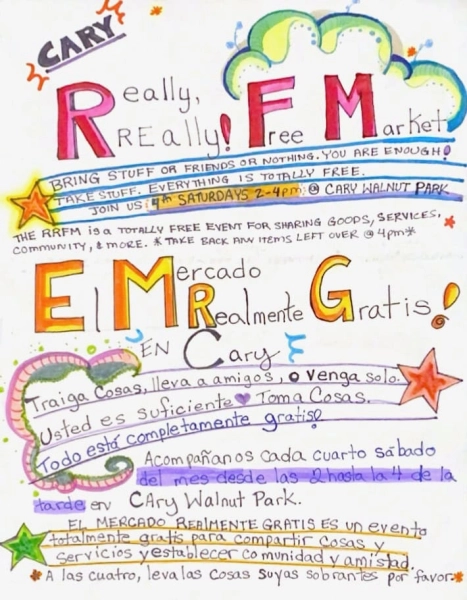 CARY
Really,
RREally! Free Market
BRING STUFF OR FRIENDS OR NOTHING. YOU ARE ENOUGH!
TAKE STUFF. EVERYTHING IS TOTALLY FREE.
JOIN US: 4th SATURDAYS 2-4pm @ CARY WALNUT PARK
THE RRFM is a TOTALLY FREE EVENT FOR SHARING GOODS, SERVICES,
COMMUNITY, & MORE. * TAKE BACK ANY ITEMS LEFT OVER @ 4pm*
El Mercado
Realmente Gratis!
EN Cary
Traiga Cosas, lleva a amigos, o venga solo.
Usted es suficiente ♥ Toma Cosas.
Todo está completamente gratis!
Acompáñanos cada cuarto sábado
del mes desde las 2 hasta la 4 de la
tarde en CAry Walnut Park.
EL MERCADO REALMENTE GRATIS ES un evento
totalmente gratis para compartir cosas y
servicios y establecer comunidad y amistad.
*A las cuatro, leva las cosas suyas sobrantes por favor*